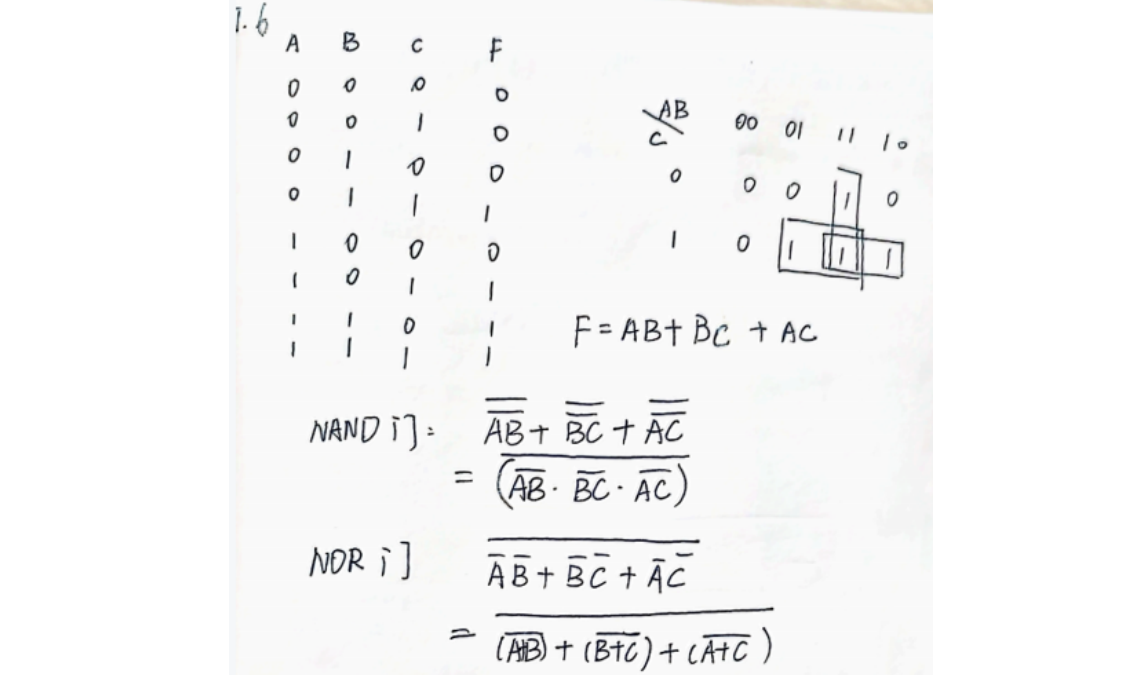 1.6
A B C F
0 0 0 0
0 0 1 0
0 1 0 0
0 1 1 1
1 0 0 0
1 0 1 1
1 1 0 1
1 1 1 1
AB
C 00 01 11 10
0 0 0 1 0
1 0 1 1 1
F = AB + BC + AC
NAND 门: A̿B̿ + B̿C̿ + A̿C̿
= \overline{(\overline{AB} · \overline{BC} · \overline{AC})}
NOR 门 \overline{\overline{A} \overline{B} + \overline{B} \overline{C} + \overline{A} \overline{C}}
= \overline{(\overline{A+B}) + (\overline{B+C}) + (\overline{A+C})}